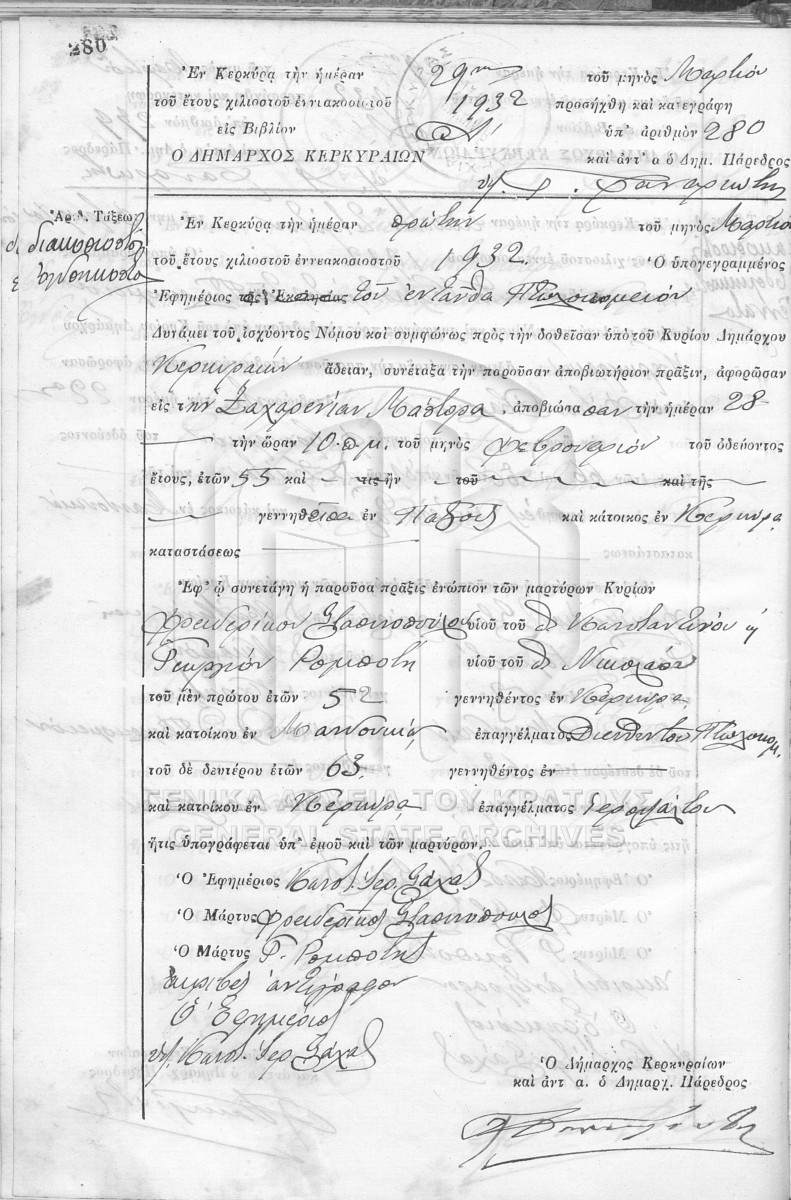 280
Ἐν Κερκύρᾳ τὴν ἡμέραν 29ην τοῦ μηνὸς Μαρτίου
τοῦ ἔτους χιλιοστοῦ ἐννεακοσιοστοῦ 1932 προσήχθη καὶ κατεγράφη
εἰς Βιβλίον ὑπ' ἀριθμὸν 280
Ὁ ΔΗΜΑΡΧΟΣ ΚΕΡΚΥΡΑΙΩΝ καὶ ἀντ' α ὁ Δημ. Πάρεδρος
Ἀριθ. Τάξεως
διακοσιοστὴ
ὀγδοηκοστὴ
Ἐν Κερκύρᾳ τὴν ἡμέραν πρώτην τοῦ μηνὸς Μαρτίου
τοῦ ἔτους χιλιοστοῦ ἐννεακοσιοστοῦ 1932. Ὁ ὑπογεγραμμένος
Ἐφημέριος τῆς Ἐκκλησίας τοῦ ἐνταῦθα Πτωχοκομείου
Δυνάμει τοῦ ἰσχύοντος Νόμου καὶ συμφώνως πρὸς τὴν δοθεῖσαν ὑπὸ τοῦ Κυρίου Δημάρχου
Κερκυραίων ἄδειαν, συνέταξα τὴν παροῦσαν ἀποβιωτήριον πρᾶξιν, ἀφορῶσαν
εἰς τὴν Ζαχαρένιαν Μάστορα, ἀποβιώσασαν τὴν ἡμέραν 28
τὴν ὥραν 10 π.μ. τοῦ μηνὸς Φεβρουαρίου τοῦ ὁδεύοντος
ἔτους, ἐτῶν 55 καὶ τις ἦν τοῦ καὶ τῆς
γεννηθεῖσα ἐν Παξοῖς καὶ κάτοικος ἐν Κερκύρᾳ
καταστάσεως
Ἐφ' ᾧ συνετάγη ἡ παροῦσα πρᾶξις ἐνώπιον τῶν μαρτύρων Κυρίων
Φρειδερίκου υἱοῦ τοῦ Κωνσταντίνου
Γεωργίου Ρομποτῆ υἱοῦ τοῦ Νικολάου
τοῦ μὲν πρώτου ἐτῶν 52 γεννηθέντος ἐν Κερκύρᾳ
καὶ κατοίκου ἐν Μαντουκίῳ ἐπαγγέλματος Διευθυντοῦ Πτωχοκομ.
τοῦ δὲ δευτέρου ἐτῶν 63 γεννηθέντος ἐν
καὶ κατοίκου ἐν Κερκύρᾳ ἐπαγγέλματος Ἱεροψάλτου
ΓΕΝΙΚΑ ΑΡΧΕΙΑ ΤΟΥ ΚΡΑΤΟΥΣ
GENERAL STATE ARCHIVES
ἥτις ὑπογράφεται ὑπ' ἐμοῦ καὶ τῶν μαρτύρων.
Ὁ Ἐφημέριος Κωνστ. Ἱερ.
Ὁ Μάρτυς Φρειδερίκος
Ὁ Μάρτυς Γ. Ρομποτῆς
Ἀκριβὲς ἀντίγραφον
Ὁ Ἐφημέριος
Κωνστ. Ἱερ.
Ὁ Δήμαρχος Κερκυραίων
καὶ ἀντ α. ὁ Δημαρχ. Πάρεδρος